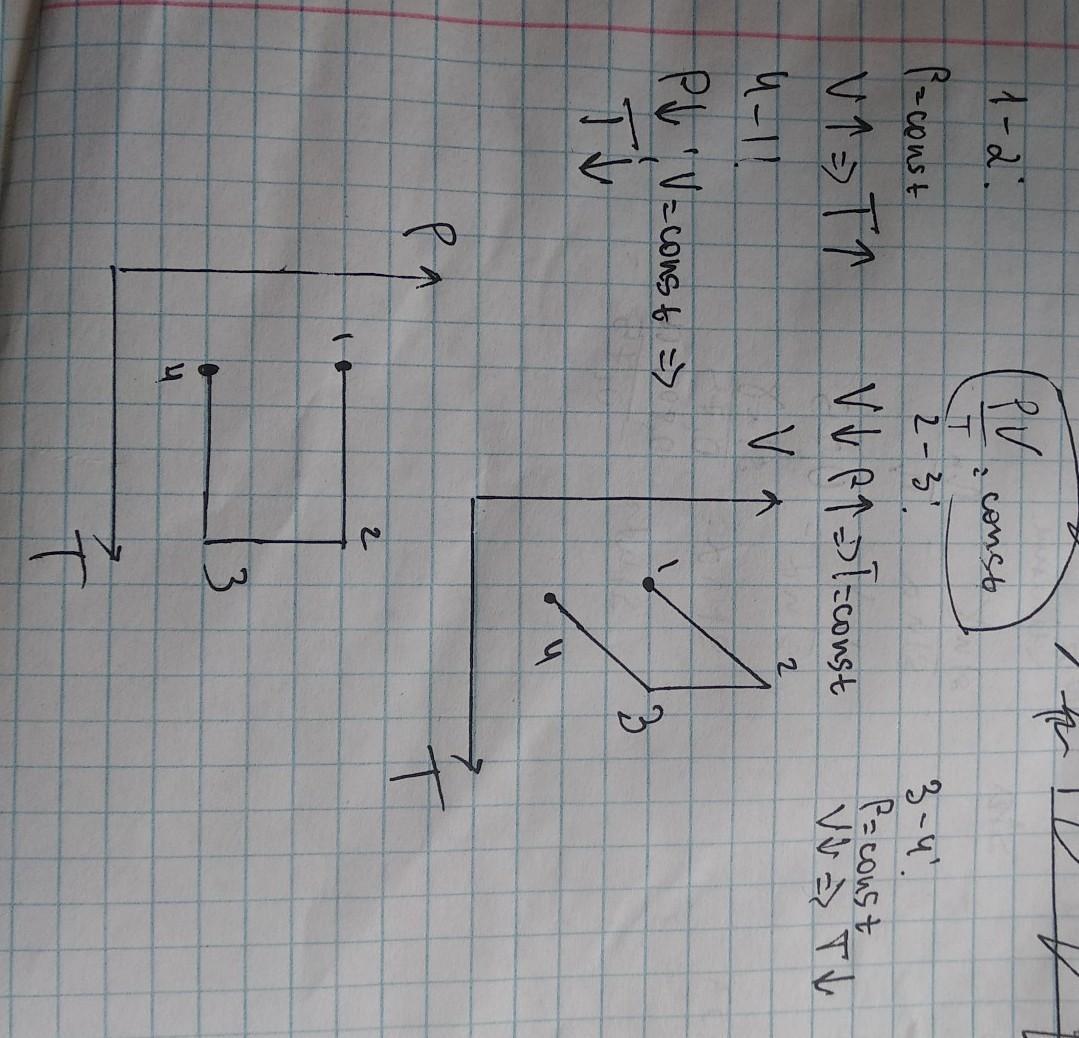 1-2:
P=const
V↑ ⇒ T↑
4-1:
P↓, V=const ⇒
T↓
PV/T = const
2-3:
V↓ P↑ ⇒ T=const
3-4:
P=const
V↓ ⇒ T↓
V
1
2
3
4
T
P
1
2
4
3
T